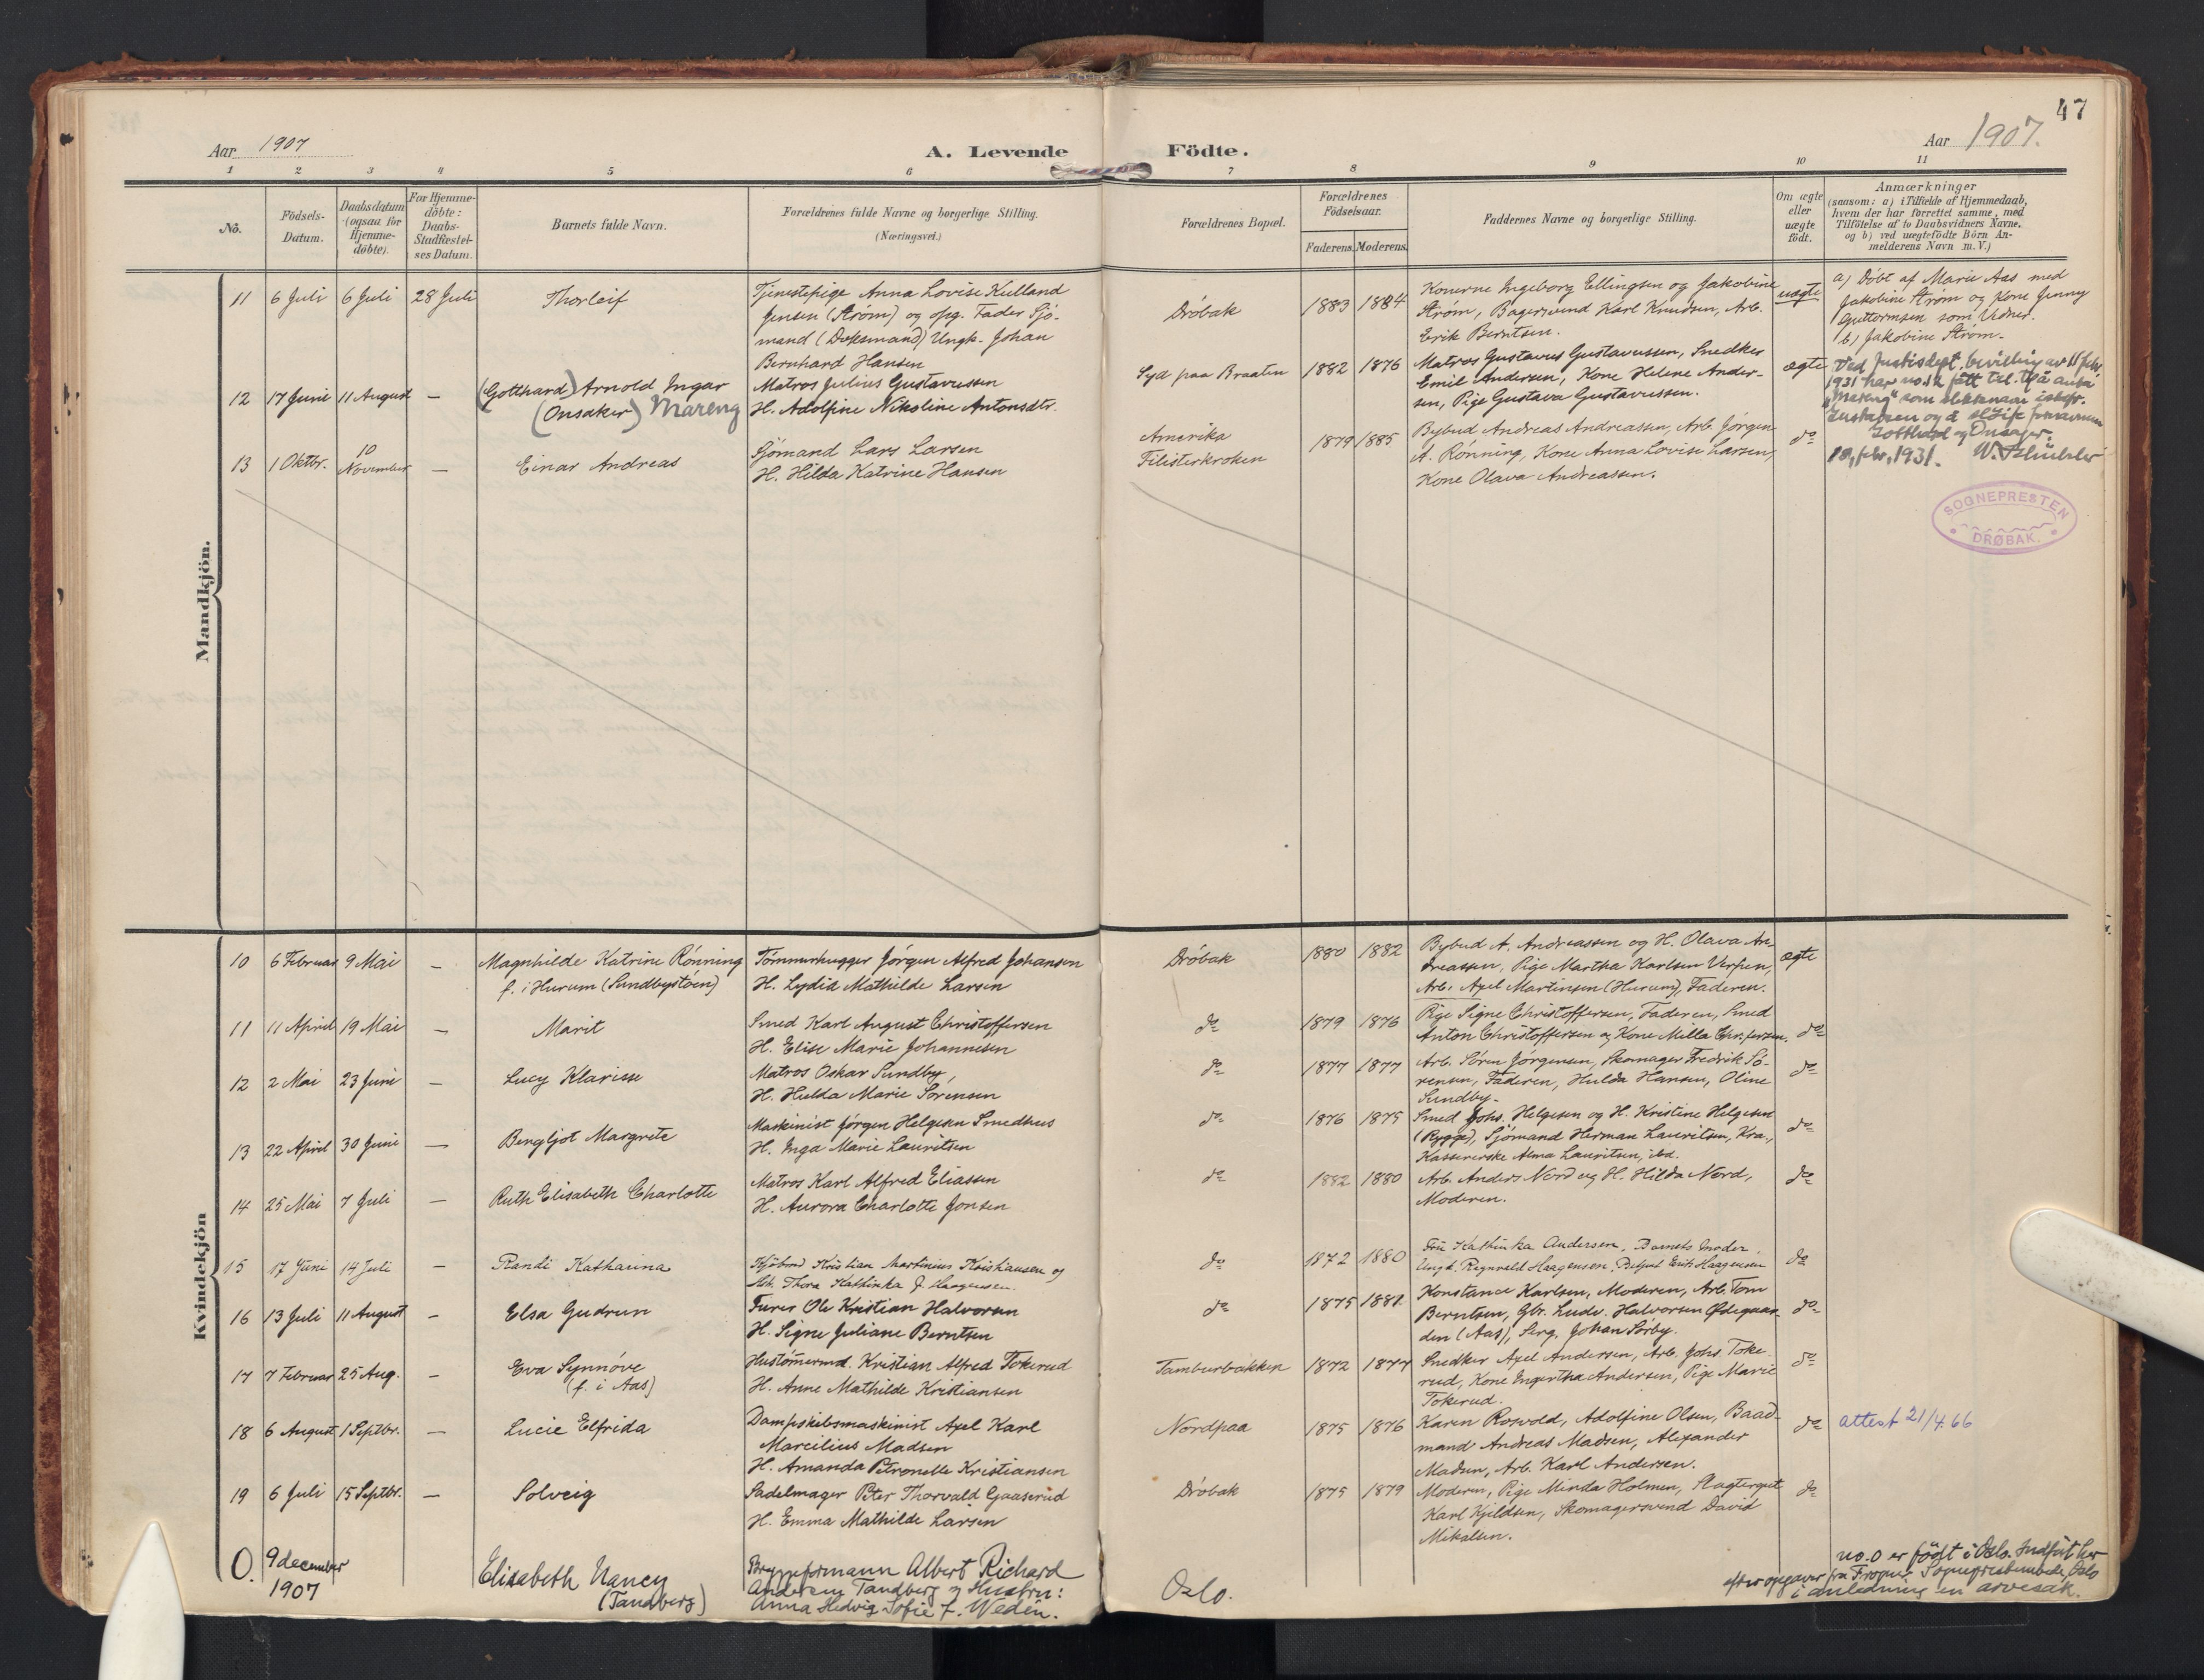 47
Aar 1907
A. Levende
Fødte.
Aar 1907.
1 2 3 4 5 6 7 8 9 10 11
No.
Fødsels-Datum.
Daabsdatum (ogsaa for Hjemme-døbte).
For Hjemme-døbte: Daabs-Stadfæstel-ses Datum.
Barnets fulde Navn.
Forældrenes fulde Navne og borgerlige Stilling.
(Næringsvei.)
Forældrenes Bopæl.
Forældrenes Fødselsaar.
Faderens. Moderens.
Faddernes Navne og borgerlige Stilling.
Om ægte eller uægte født.
Anmærkninger
(saasom: a) i Tilfælde af Hjemmedaab,
hvem der har forrettet samme, med
Tilføielse af to Daabsvidners Navne.
og b) ved uægtefødte Børn An-
melderens Navn m. V.)
Mandkjön.
11 6 Juli 6 Juli 28 Juli Thorleif
Tjenestepige Anna Lovise Kulland
Jensen (Strøm) og opg. Fader Sjø-
mand (Dæksmand) Ungk. Johan
Bernhard Hansen
Drøbak 1883 1884
Konerne Ingeborg Ellingsen og Jakobine
Strøm, Bagersvend Karl Knudsen, Arb.
Erik Berntsen.
uægte
a) Døbt af Marie Aas med
Jakobine Strøm og Kone Jenny
Guttormsen som Vidner.
b) Jakobine Strøm.
12 17 Juni 11 August — (Gotthard) Arnold Ingar
(Onsaker) Mareng
Matros Julius Gustavussen
H. Adolfine Nikoline Antonsdtr.
Syd paa Braaten 1882 1876
Matros Gustavus Gustavussen, Snedker
Emil Andersen, Kone Helene Ander-
sen, Pige Gustava Gustavussen.
ægte
Ved Justisdept. bevilling av 11 febr.
1931 har no. 12 fått till. til å anta
"Mareng" som slektsnavn istedf.
Gustavsen og å sløife fornavnene
Gotthard og Onsager.
18, febr, 1931.
SOGNEPRESTEN
DRØBAK.
13 1 Oktbr. 10 November — Einar Andreas
Sjømand Lars Larsen
H. Hilda Katrine Hansen
Amerika
Filisterkroken
1879 1885
Bybud Andreas Andreassen, Arb. Jørgen
A. Rønning, Kone Anna Lovise Larsen,
Kone Olava Andreassen.
do
Kvindekjön
10 6 Februar 9 Mai — Magnhilde Katrine Rønning
f. i Hurum (Sundbystøen)
Tømmerhugger Jørgen Alfred Johansen
H. Lydia Mathilde Larsen
Drøbak 1880 1882
Bybud A. Andreassen og H. Olava An-
dreassen, Pige Martha Karlsen Verpen,
Arb. Axel Martinsen (Hurum), Faderen.
ægte
11 11 April 19 Mai — Marit
Smed Karl August Christoffersen
H. Elise Marie Johannesen
do 1879 1876
Pige Signe Christoffersen, Faderen, Smed
Anton Christoffersen og Kone Milla Chr.fersen.
do
12 2 Mai 23 Juni — Lucy Klarisse
Matros Oskar Sundby,
H. Hulda Marie Sørensen
do 1877 1877
Arb. Søren Jørgensen, Skomager Fredrik Sø-
rensen, Faderen, Hulda Hansen, Oline
Sundby.
do
13 22 April 30 Juni — Bergljot Margrete
Maskinist Jørgen Helgesen Smedhus
H. Inga Marie Lauritsen
do 1876 1875
Smed Johs. Helgesen og H. Kristine Helgesen
(Rygge), Sjømand Herman Lauritsen, Kra.,
Kassererske Alma Lauritsen, ibd.
do
14 25 Mai 7 Juli — Ruth Elisabeth Charlotte
Matros Karl Alfred Eliassen
H. Aurora Charlotte Jonsen
do 1882 1880
Arb. Anders Nord og H. Hilda Nord,
Moderen.
do
15 17 Juni 14 Juli — Randi Katharina
Kjøbmd Kristian Martinius Kristiansen og
Thora Kathinka J. Haagensen.
do 1872 1880
Fru Kathinka Andersen, Barnets Moder.
Ungk. Regnvald Haagensen, Erik Haagensen
do
16 13 Juli 11 August — Elsa Gudrun
Furer Ole Kristian Halvorsen
H. Signe Juliane Berntsen
do 1875 1881
Konstance Karlsen, Moderen, Arb. Tom
Berntsen, Gbr. Ludv. Halvorsen Ødegaar-
den (Aas), Serg. Johan Sørby.
do
17 7 Februar 25 Aug. — Eva Synnøve
(f. i Aas)
Hustømermd. Kristian Alfred Tokerud
H. Anne Mathilde Kristiansen
Tamburbakken 1872 1877
Snedker Axel Andersen, Arb. Johs Toke-
rud, Kone Ingertha Andersen, Pige Marie
Tokerud.
do
18 6 August 1 Septbr. — Lucie Elfrida
Dampskibsmaskinist Axel Karl
Marcilius Madsen
H. Amanda Petronelle Kristiansen
Nordpaa 1875 1876
Karen Roswold, Adolfine Olsen, Baad-
mand Andreas Madsen, Alexander
Madsen, Arb. Karl Andersen.
do attest 21/4.66
19 6 Juli 15 Septbr. — Solveig
Sadelmager Peter Thorvald Gaaserud
H. Emma Mathilde Larsen
Drøbak 1875 1879
Moderen, Pige Minda Holmen, Slagtergut
Karl Kjeldsen, Skomagersvend David
Mikalsen.
do
O. 9 december 1907
Elisabeth Nancy
(Tandberg)
Bryggeformann Albert Richard
Andersen Tandberg og Hustru:
Anna Hedvig Sofie f. Wedén.
Oslo.
no. 0 er født i Oslo. Indført her
efter opgaver fra Frogner Sogneprestembede, Oslo
i anledning en arvesak.